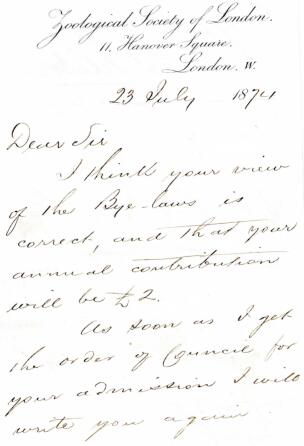 Zoological Society of London.
11, Hanover Square.
London. W.
23 July 1874
Dear Sir
I think your view
of the Bye-laws is
correct, and that your
annual contribution
will be £2.
As soon as I get
the order of Council for
your admission I will
write you again